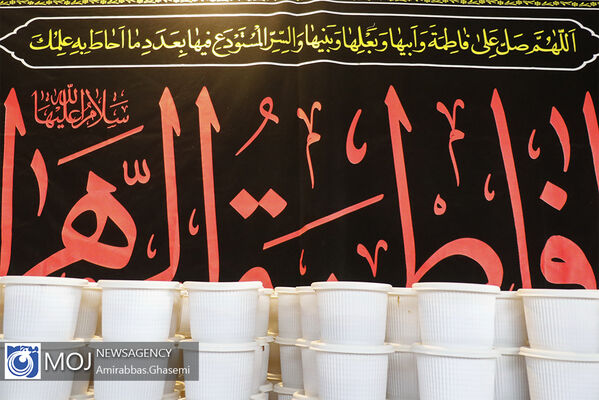 اَللّهُمَّ صَلِّ عَلیٰ فاطِمَةَ وَ اَبیها وَ بَعْلِها وَ بَنیها وَ السِّرِّ الْمُسْتَوْدَعِ فیها بِعَدَدِ ما اَحاطَ بِهِ عِلْمُكَ
سَلامُ اللّهِ عَلَیْها
فاطمة الزهرا
موج
MOJ NEWSAGENCY
Amirabbas.Ghasemi